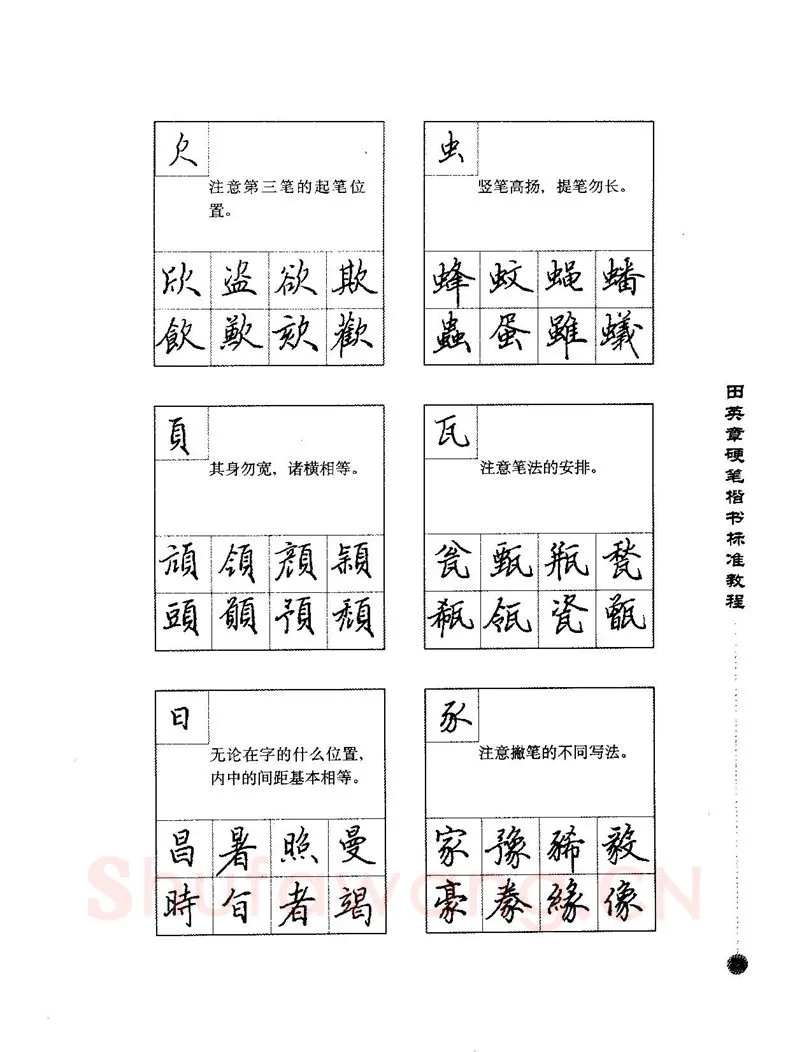 欠
注意第三笔的起笔位
置。
欣 盗 欲 欺
飲 歉 欬 歡
虫
竖笔高扬，提笔勿长。
蜂 蚊 蝇 蟠
蟲 蛋 雖 蟻
頁
其身勿宽，诸横相等。
頑 領 顔 穎
頭 預 頹
瓦
注意笔法的安排。
瓮 甄 瓶 甃
瓻 瓴 瓷 甑
日
无论在字的什么位置，
内中的间距基本相等。
昌 暑 照 曼
時 旨 者 竭
豕
注意撇笔的不同写法。
家 豫 豨 毅
豪 豢 緣 像
田英章硬笔楷书标准教程
Shufawang.CN